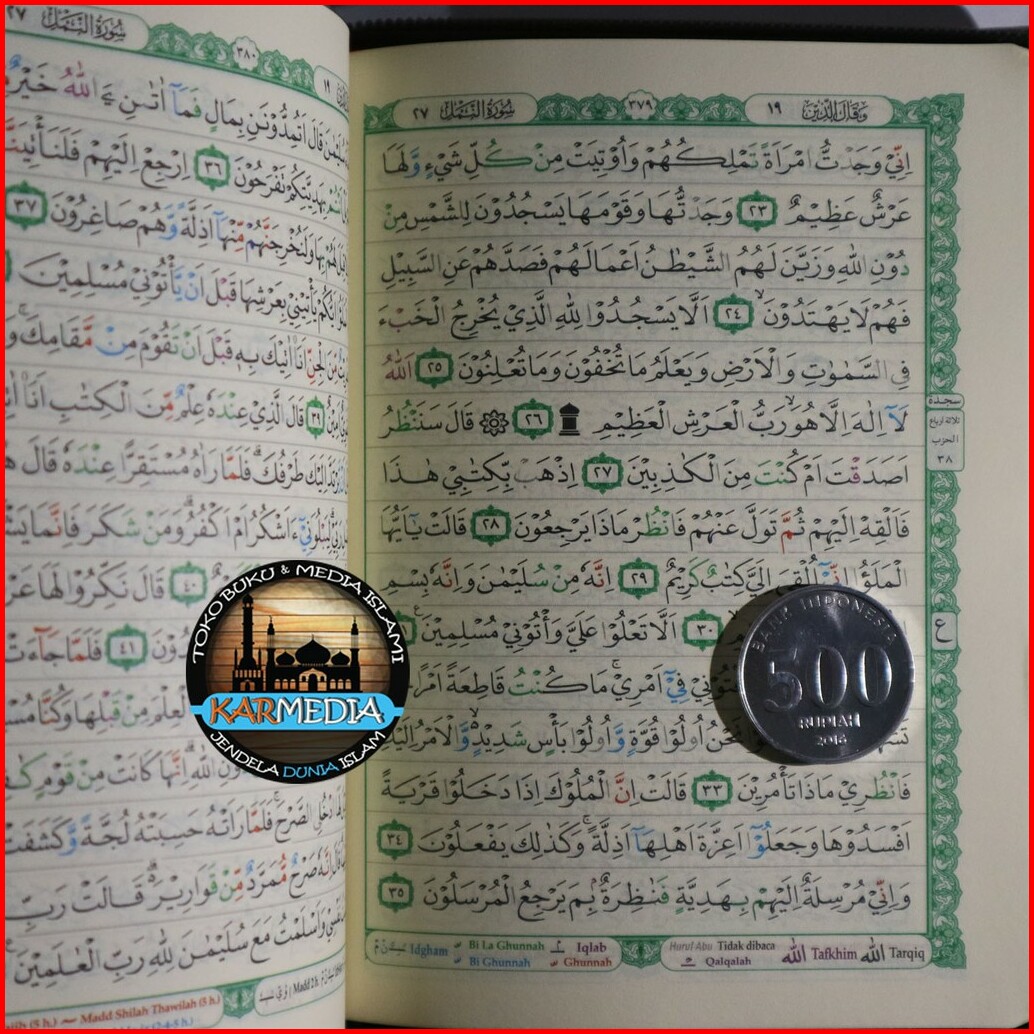 وقال الذين ١٩
٣٧٩
سورة النمل ٢٧
اِنِّيْ وَجَدْتُّ امْرَاَةً تَمْلِكُهُمْ وَاُوْتِيَتْ مِنْ كُلِّ شَيْءٍ وَّلَهَا
عَرْشٌ عَظِيْمٌ ٢٣ وَجَدْتُّهَا وَقَوْمَهَا يَسْجُدُوْنَ لِلشَّمْسِ مِنْ
دُوْنِ اللّٰهِ وَزَيَّنَ لَهُمُ الشَّيْطٰنُ اَعْمَالَهُمْ فَصَدَّهُمْ عَنِ السَّبِيْلِ
فَهُمْ لَا يَهْتَدُوْنَۙ ٢٤ اَلَّا يَسْجُدُوْا لِلّٰهِ الَّذِيْ يُخْرِجُ الْخَبْءَ
فِى السَّمٰوٰتِ وَالْاَرْضِ وَيَعْلَمُ مَا تُخْفُوْنَ وَمَا تُعْلِنُوْنَ ٢٥ اَللّٰهُ
لَآ اِلٰهَ اِلَّا هُوَۙ رَبُّ الْعَرْشِ الْعَظِيْمِ ۩ ٢٦ ۞ قَالَ سَنَنْظُرُ
اَصَدَقْتَ اَمْ كُنْتَ مِنَ الْكٰذِبِيْنَ ٢٧ اِذْهَبْ بِّكِتٰبِيْ هٰذَا
فَاَلْقِهْ اِلَيْهِمْ ثُمَّ تَوَلَّ عَنْهُمْ فَانْظُرْ مَاذَا يَرْجِعُوْنَ ٢٨ قَالَتْ يٰٓاَيُّهَا
الْمَلَؤُا اِنِّيْٓ اُلْقِيَ اِلَيَّ كِتٰبٌ كَرِيْمٌ ٢٩ اِنَّهٗ مِنْ سُلَيْمٰنَ وَاِنَّهٗ بِسْمِ
٣٠ اَلَّا تَعْلُوْا عَلَيَّ وَأْتُوْنِيْ مُسْلِمِيْنَ
فِيْٓ اَمْرِيْۚ مَا كُنْتُ قَاطِعَةً
اُولُوْا قُوَّةٍ وَّاُولُوْا بَأْسٍ شَدِيْدٍۙ وَّالْاَمْرُ اِلَيْكِ
فَانْظُرِيْ مَاذَا تَأْمُرِيْنَ ٣٣ قَالَتْ اِنَّ الْمُلُوْكَ اِذَا دَخَلُوْا قَرْيَةً
اَفْسَدُوْهَا وَجَعَلُوْٓا اَعِزَّةَ اَهْلِهَآ اَذِلَّةًۚ وَكَذٰلِكَ يَفْعَلُوْنَ ٣٤
وَاِنِّيْ مُرْسِلَةٌ اِلَيْهِمْ بِهَدِيَّةٍ فَنٰظِرَةٌۢ بِمَ يَرْجِعُ الْمُرْسَلُوْنَ ٣٥
سجدة
ثلاثة أرباع
الحزب
٣٨
ع
Idgham Bi La Ghunnah Iqlab Huruf Abu Tidak dibaca الله Tafkhim الله Tarqiq
Bi Ghunnah Ghunnah Qalqalah
٣٨٠
سورة النمل ٢٧
قَالَ اَتُمِدُّوْنَنِ بِمَالٍ فَمَآ اٰتٰىنِ َۧ اللّٰهُ خَيْرٌ
بِهَدِيَّتِكُمْ تَفْرَحُوْنَ ٣٦ اِرْجِعْ اِلَيْهِمْ
مِّنْهَآ اَذِلَّةً وَّهُمْ صَاغِرُوْنَ ٣٧
يَأْتِيْنِيْ بِعَرْشِهَا قَبْلَ اَنْ يَّأْتُوْنِيْ مُسْلِمِيْنَ
مِّنَ الْجِنِّ اَنَا۠ اٰتِيْكَ بِهٖ قَبْلَ اَنْ تَقُوْمَ مِنْ مَّقَامِكَ
٣٩ قَالَ الَّذِيْ عِنْدَهٗ عِلْمٌ مِّنَ الْكِتٰبِ اَنَا۠
اِلَيْكَ طَرْفُكَۗ فَلَمَّا رَاٰهُ مُسْتَقِرًّا عِنْدَهٗ قَالَ
ءَاَشْكُرُ اَمْ اَكْفُرُۗ وَمَنْ شَكَرَ فَاِنَّمَا
٤٠ قَالَ نَكِّرُوْا لَهَا
٤١ فَلَمَّا جَاۤءَتْ
الْعِلْمَ مِنْ قَبْلِهَا وَكُنَّا
اللّٰهِ اِنَّهَا كَانَتْ مِنْ قَوْمٍ
ادْخُلِى الصَّرْحَۚ فَلَمَّا رَاَتْهُ حَسِبَتْهُ لُجَّةً وَّكَشَفَتْ
اِنَّهٗ صَرْحٌ مُّمَرَّدٌ مِّنْ قَوَارِيْرَ ەۗ قَالَتْ رَبِّ
وَاَسْلَمْتُ مَعَ سُلَيْمٰنَ لِلّٰهِ رَبِّ الْعٰلَمِيْنَ
Madd Shilah Thawilah (5 h.)
TOKO BUKU & MEDIA ISLAMI
KARMEDIA
JENDELA DUNIA ISLAM
BANK INDONESIA
500
RUPIAH
2016